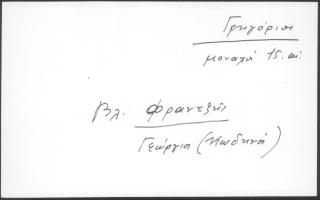 Γρηγόριος
μοναχός 15. αι.
Βλ. Φραντζής
Γεώργιος (Κωδηνός)